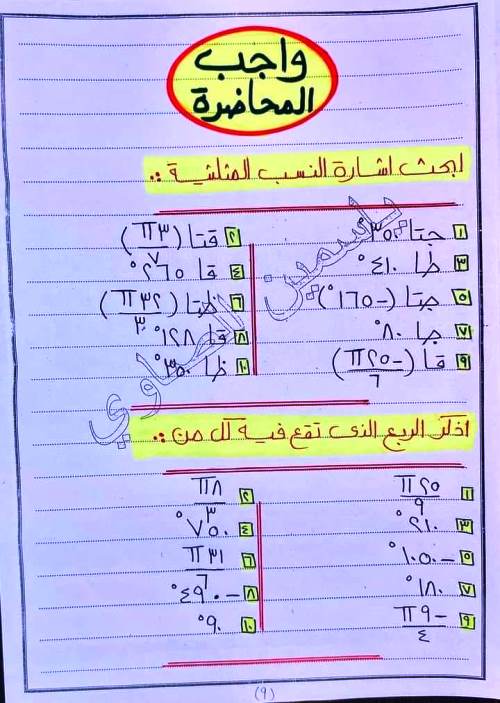 واجب
المحاضرة
ابحث اشارة النسب المثلثية :.
١ جتا ٣٥٠° ٢ قتا (٣π/٧)
٣ ظا ٤١٠° ٤ قا ٢٦٥°
٥ جتا (-١٦٥°) ٦ ظتا (٣٢π/٣)
٧ جا ٨٠° ٨ قا ١٢٨°
٩ قا (-٢٥π/٦) ١٠ ظا ٣٥٠°
اذكر الربع الذى تقع فيه كل من :.
١ ٢٥π/٩ ٢ ٨π/٣
٣ ٢١٠° ٤ ٧٥٠°
٥ -١٠٥٠° ٦ ٣١π/٦
٧ ١٨٠° ٨ -٤٩٠°
٩ -٩π/٤ ١٠ ٩٠°
(٩)